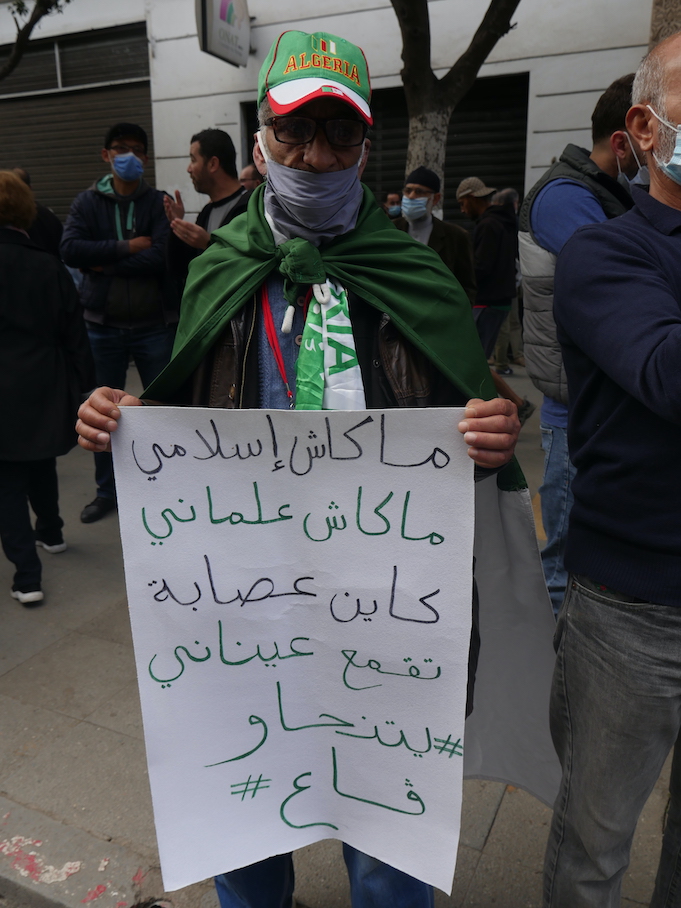 ALGERIA
ماكاش إسلامي
ماكاش علماني
كاين عصابة
تقمع عيناني
#يتنحاو
ڤاع #